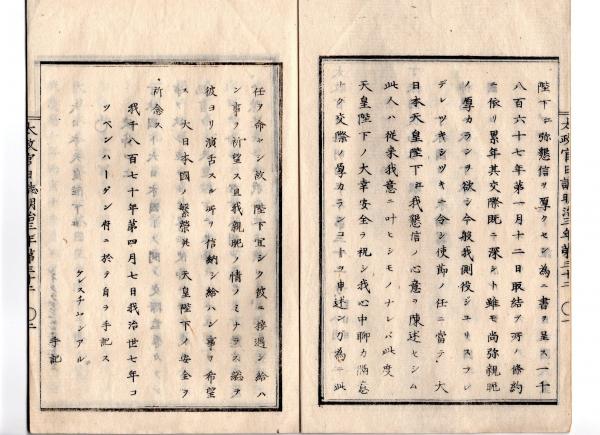 陛下ニ弥懇信ヲ尊クセン為ニ一書ヲ呈ス一千
八百六十七年第一月十二日取結ヲ所ノ條約
ニ依リ累年其交際既ニ深シト雖モ尚弥親昵
ノ尊カランヲ欲シ今般我側役ジユリスフレ
デレツキシツキニ令シ使節ノ任ニ當テ大
日本天皇陛下ニ我懇信ノ心意ヲ陳述セシム
此人ハ従来我意ニ叶ヒシモノナレバ此度
天皇陛下ノ大幸安全ヲ祝シ我心中聊カ隔意
ナク交際ノ尊カランコトヲ申述ンガ為ニ此
太政官日誌明治三年第三十二 〇一
任ヲ命セシ故陛下宜シク彼ニ接遇シ給ハ
ン事ヲ祈望ス且我親昵ノ情ノミナラス総テ
彼ヨリ演舌スル所ヲ信納シ給ハン事ヲ希望
ス大日本國ノ繁榮其天皇陛下ノ安全ヲ
所念ス
我千八百七十年第四月七日我治世七年コ
ツペンハーゲン府ニ於テ自ラ手記ス
ケレスチヤンアル
手記
太政官日誌明治三年第三十二 〇二